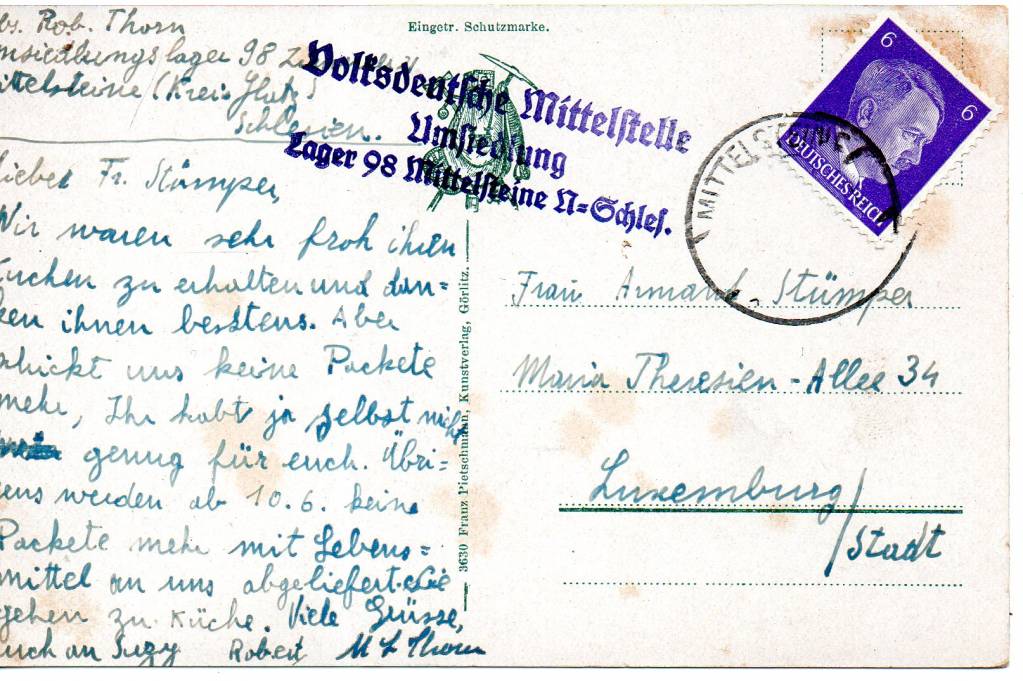 Eingetr. Schutzmarke.
Rob. Thorn
msiedlungslager 98
ittelsteine (Kreis Glatz)
Schlesien.
Volksdeutsche Mittelstelle
Umsiedlung
Lager 98 Mittelsteine N=Schles.
6
6
DEUTSCHES REICH
MITTELSTEINE
ieber Fr. Stümper,
Wir waren sehr froh ihren
uchen zu erhalten und dan=
ken ihnen besstens. Aber
schickt uns keine Packete
mehr, Ihr habt ja selbst nicht
genug für euch. Übri=
ens werden ab 10.6. keine
Packete mehr mit Lebens=
mittel an uns abgeliefert. Sie
gehen zu Küche. Viele Grüsse,
uch an Suzy Robert M L Thorn
3630 Franz Pietschmann, Kunstverlag, Görlitz.
Frau Armand Stümper
Maria Theresien-Allee 34
Luxemburg/
Stadt